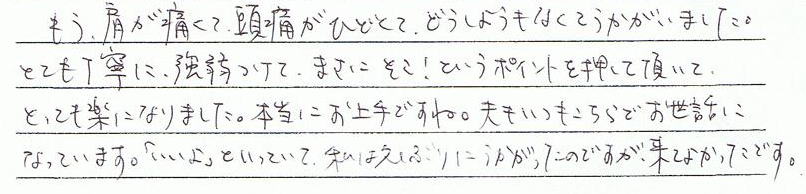 もう、肩が痛くて、頭痛がひどくて、どうしようもなくてうかがいました。
とても丁寧に、強弱つけて、まさにそこ!というポイントを押して頂いて、
とっても楽になりました。本当にお上手ですね。夫もいつもこちらでお世話に
なっています。「いいよ」といっていて、私は久しぶりにうかがったのですが、来てよかったです。